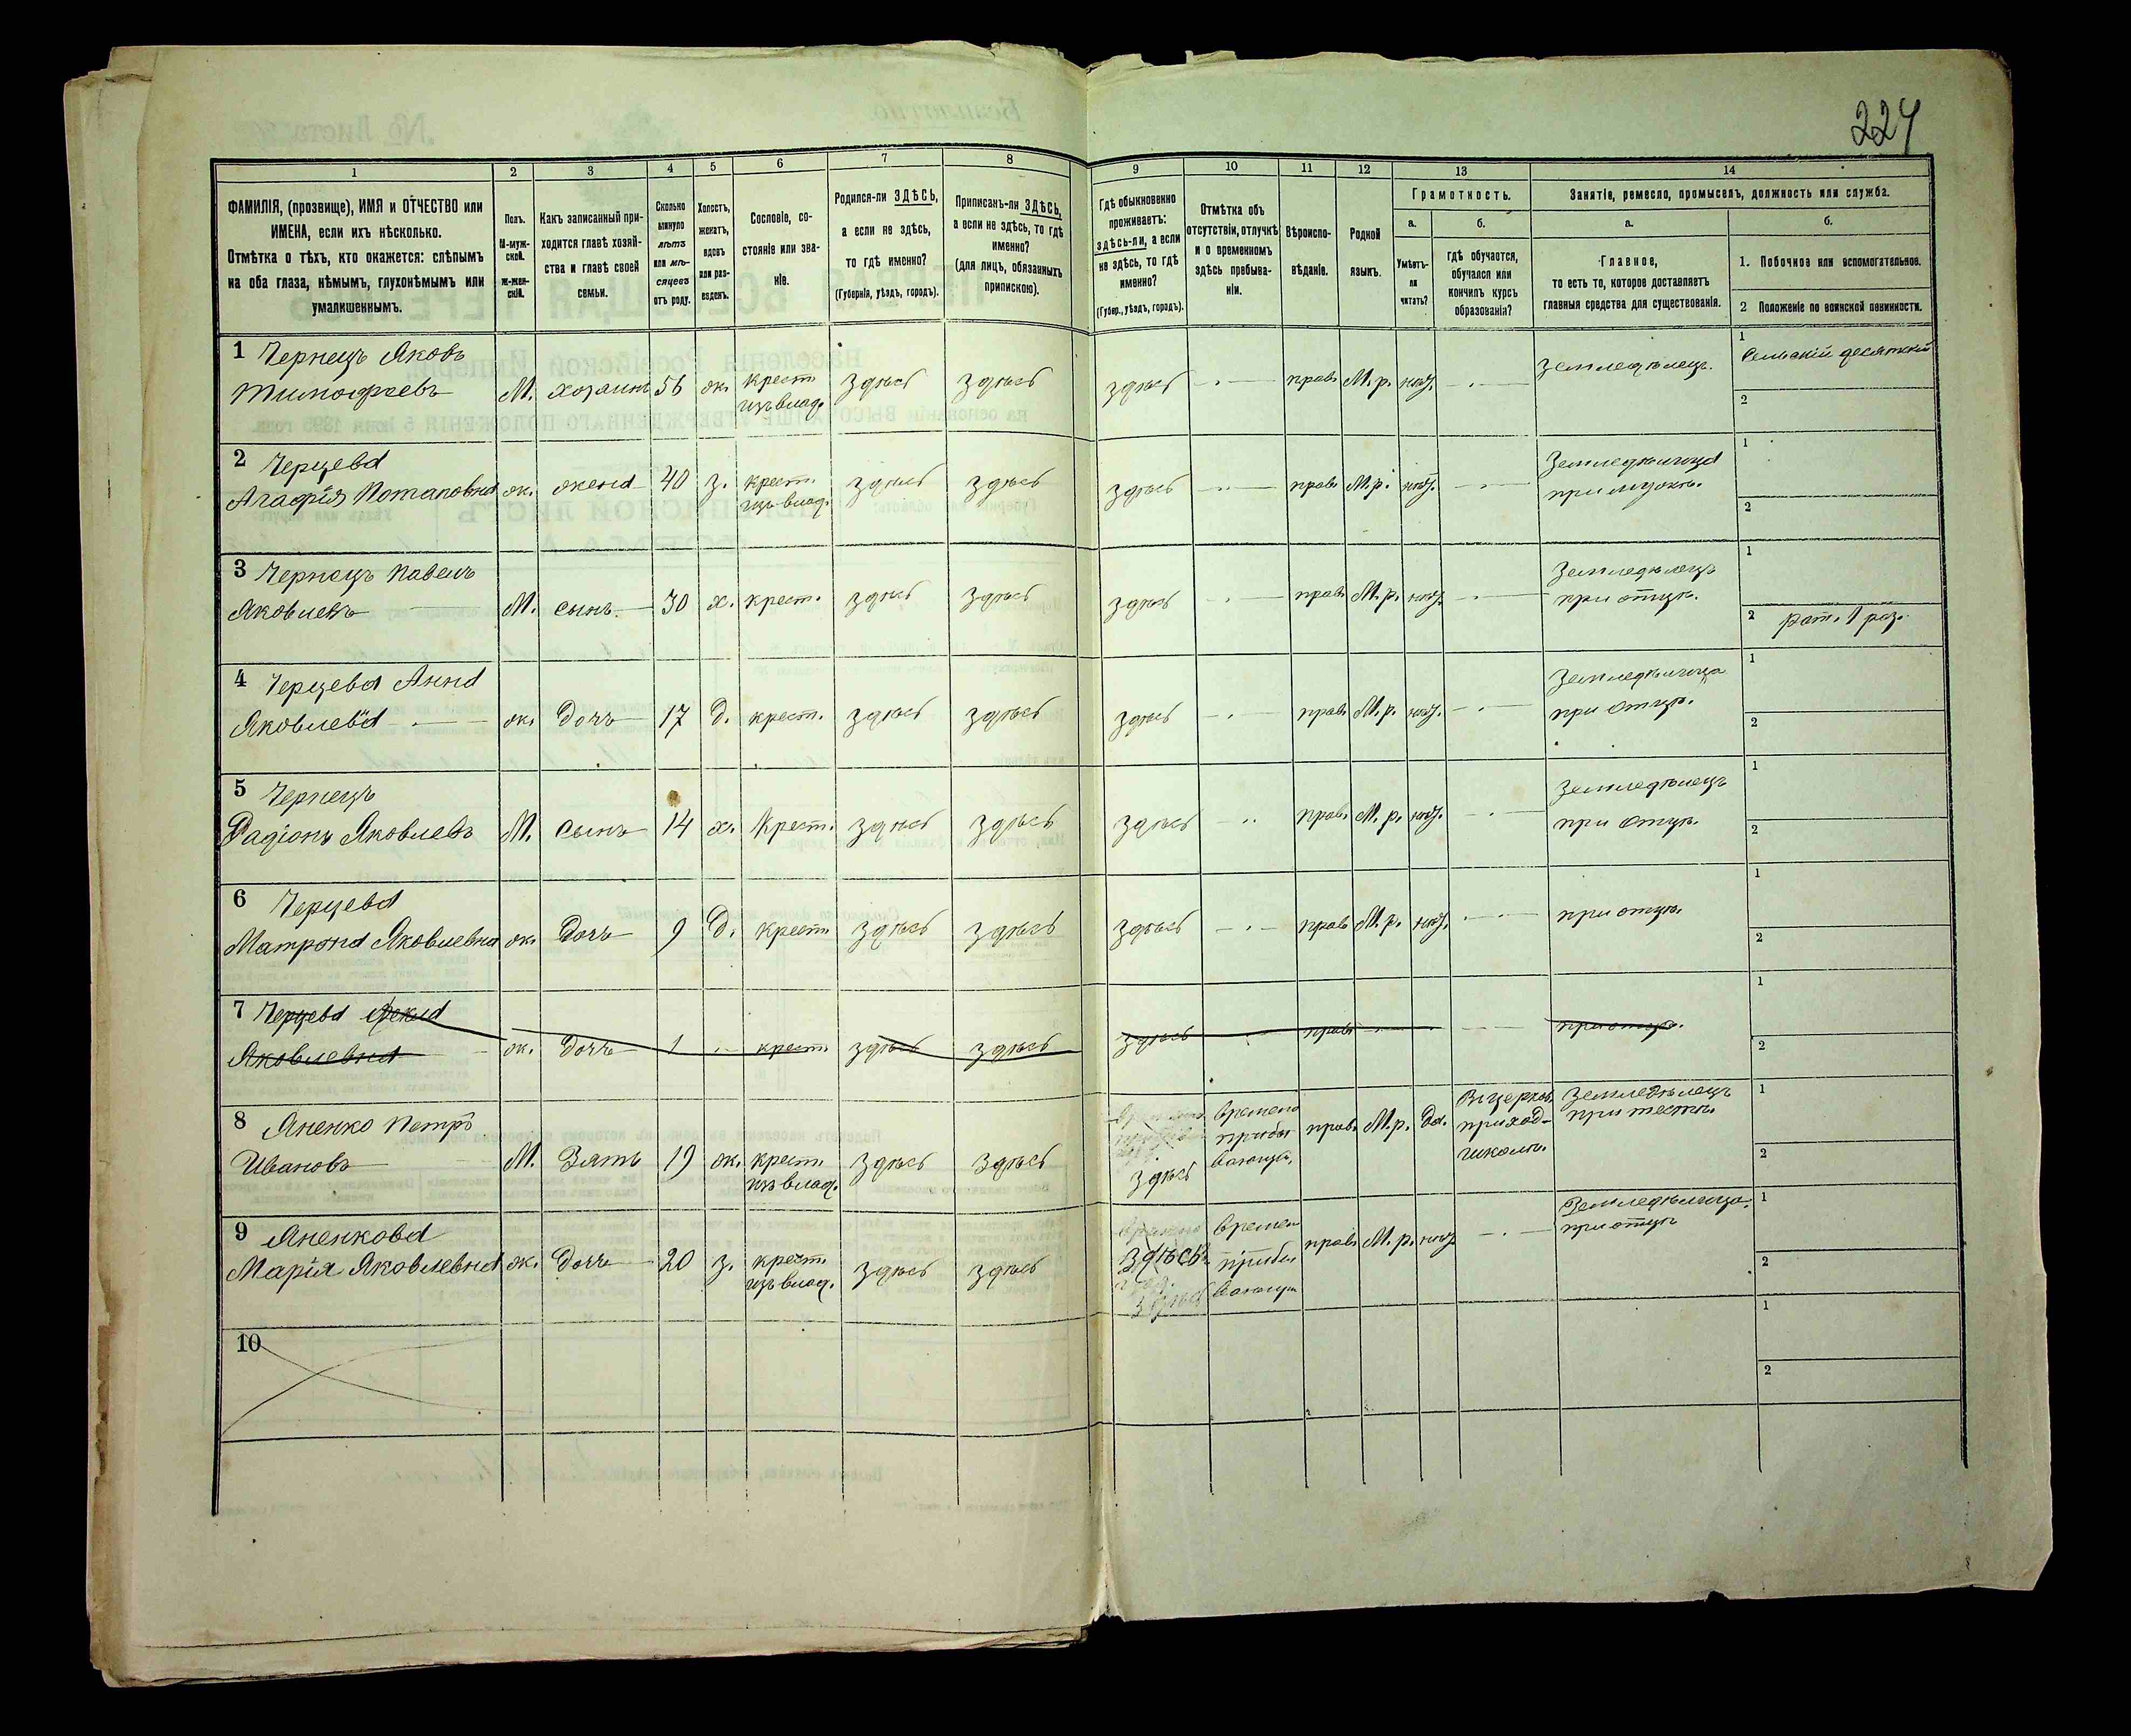 224
1 2 3 4 5 6 7 8 9 10 11 12 13 14
ФАМИЛІЯ, (прозвище), ИМЯ и ОТЧЕСТВО или
ИМЕНА, если ихъ нѣсколько.
Отмѣтка о тѣхъ, кто окажется: слѣпымъ
на оба глаза, нѣмымъ, глухонѣмымъ или
умалишеннымъ.
Полъ.
М-муж-
ской.
Ж-жен-
скій.
Какъ записанный при-
ходится главѣ хозяй-
ства и главѣ своей
семьи.
Сколько
минуло
лѣтъ
или мѣ-
сяцевъ
отъ роду.
Холостъ,
женатъ,
вдовъ
или раз-
веденъ.
Сословіе, со-
стояніе или зва-
ніе.
Родился-ли ЗДѢСЬ,
а если не здѣсь,
то гдѣ именно?
(Губернія, уѣздъ, городъ).
Приписанъ-ли ЗДѢСЬ,
а если не здѣсь, то гдѣ
именно?
(для лицъ, обязанныхъ
припискою).
Гдѣ обыкновенно
проживаетъ:
здѣсь-ли, а если
не здѣсь, то гдѣ
именно?
(Губер., уѣздъ, городъ).
Отмѣтка объ
отсутствіи, отлучкѣ
и о временномъ
здѣсь пребыва-
ніи.
Вѣроиспо-
вѣданіе.
Родной
языкъ.
Грамотность.
а.
Умѣетъ-
ли
читать?
б.
гдѣ обучается,
обучался или
кончилъ курсъ
образованія?
Занятіе, ремесло, промыселъ, должность или служба.
а.
Главное,
то есть то, которое доставляетъ
главныя средства для существованія.
б.
1. Побочное или вспомогательное.
2 Положеніе по воинской повинности.
1 Чернецъ Яковъ
Тимофѣевъ М. хозаинъ 56 ж. крест изъ влад. здѣсь здѣсь здѣсь прав. М.р. нѣт. Земледѣлецъ. 1 Сельскій десятскій 2
2 Черцева
Агафія Потаповна ж. жена 40 з. крест. изъ влад. здѣсь здѣсь здѣсь прав. М.р. нѣт. Земледѣлица при мужѣ. 1 2
3 Чернецъ Павелъ
Яковлевъ М. сынъ 30 х. крест. здѣсь здѣсь здѣсь прав. М.р. нѣт. Земледѣлецъ при отцѣ. 1 2 рат. 1 раз.
4 Черцева Анна
Яковлев'а ж. Дочь 17 Д. крест. здѣсь здѣсь здѣсь прав. М.р. нѣт. Земледѣлица при отцѣ. 1 2
5 Чернецъ
Радіонъ Яковлевъ М. сынъ 14 х. Крест. здѣсь здѣсь здѣсь прав. М.р. нѣт. Земледѣлецъ при отцѣ. 1 2
6 Черцева
Матрона Яковлевна ж. Дочь 9 Д. крест здѣсь здѣсь здѣсь прав М.р. нѣт. при отцѣ. 1 2
7 Черцева Фекла
Яковлевна ж. Дочь 1 крест здѣсь здѣсь здѣсь прав при отцѣ. 1 2
8 Яненко Петръ
Ивановъ М. Зять 19 ж. крест. изъ влад. здѣсь здѣсь здѣсь времено прибы вающ. прав. М.р. Да. Въ церков. приход- школѣ. Земледѣлецъ при тестѣ. 1 2
9 Яненкова
Марія Яковлевна ж. Дочь 20 з. крест изъ влад. здѣсь здѣсь здѣсь времен прибы вающ прав. М.р. нѣт Земледѣлица при отцѣ 1 2
10 1 2